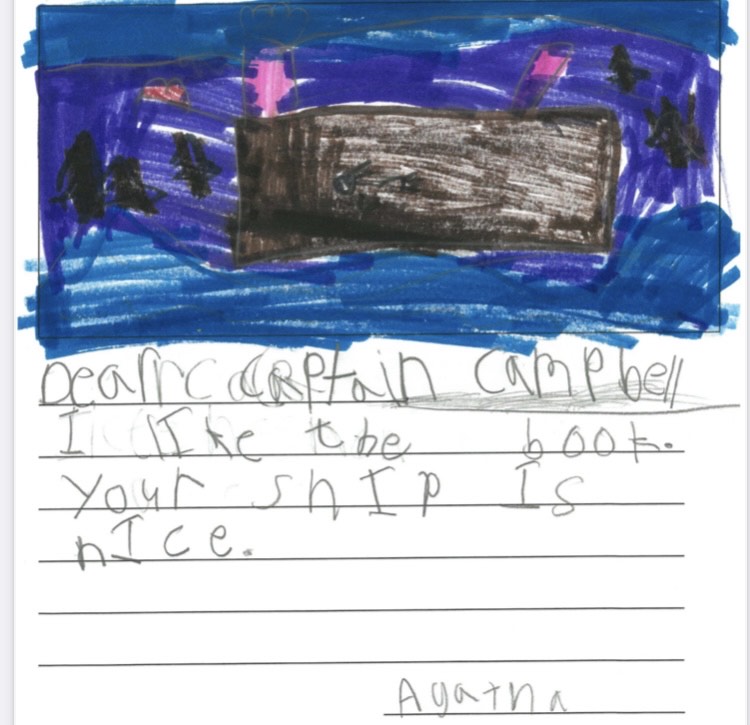 Dear captain campbell
I like the book.
your shIp Is
nIce.
Agatha